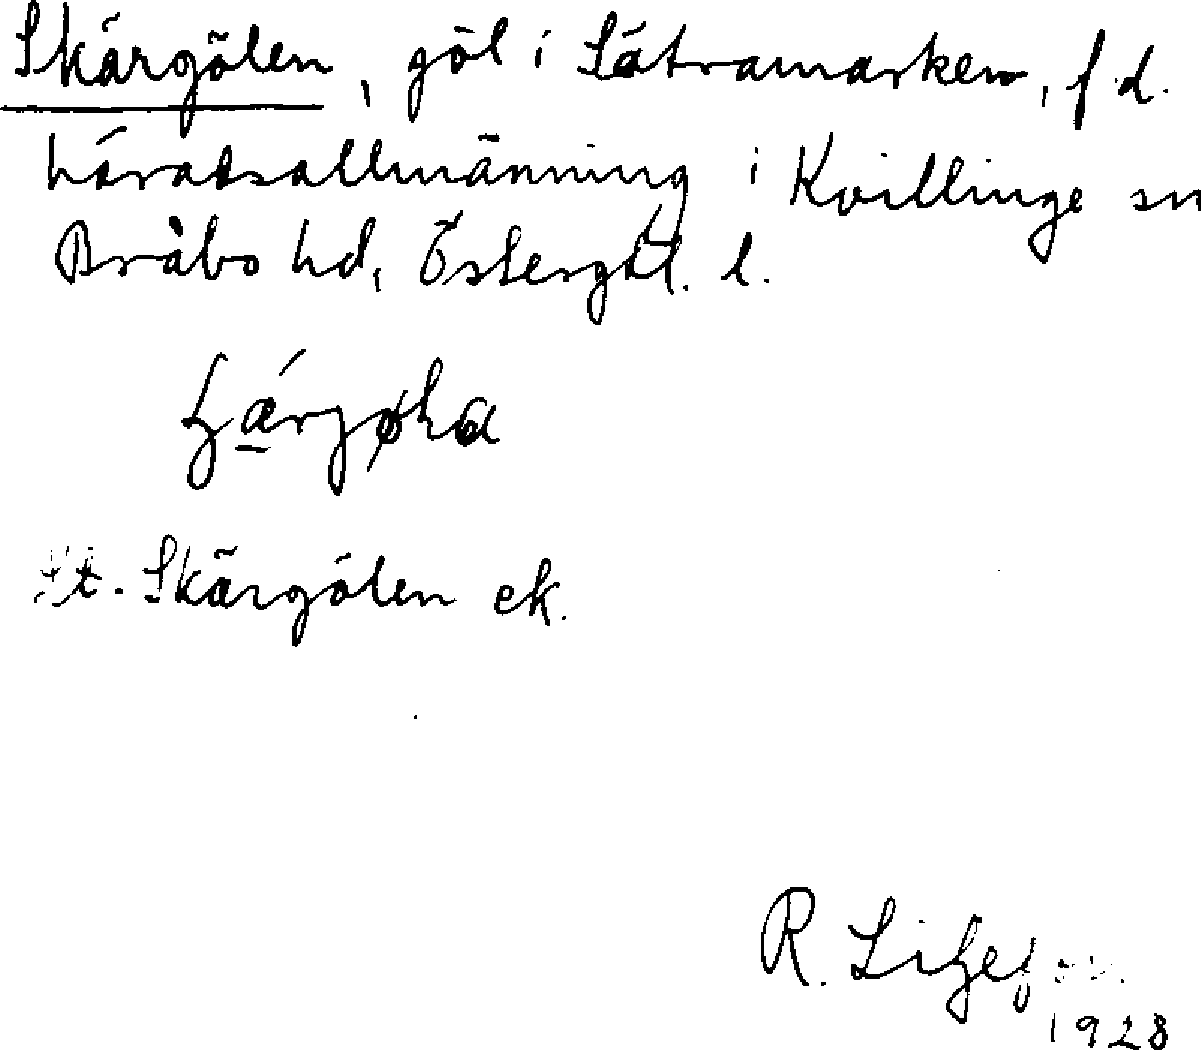 Skärgölen, göl i Sätramarken, f d.
häradsallmänning i Kvillinge sn
Bråbo hd, Östergötl. l.
St. Skärgölen ek.
R.
1928